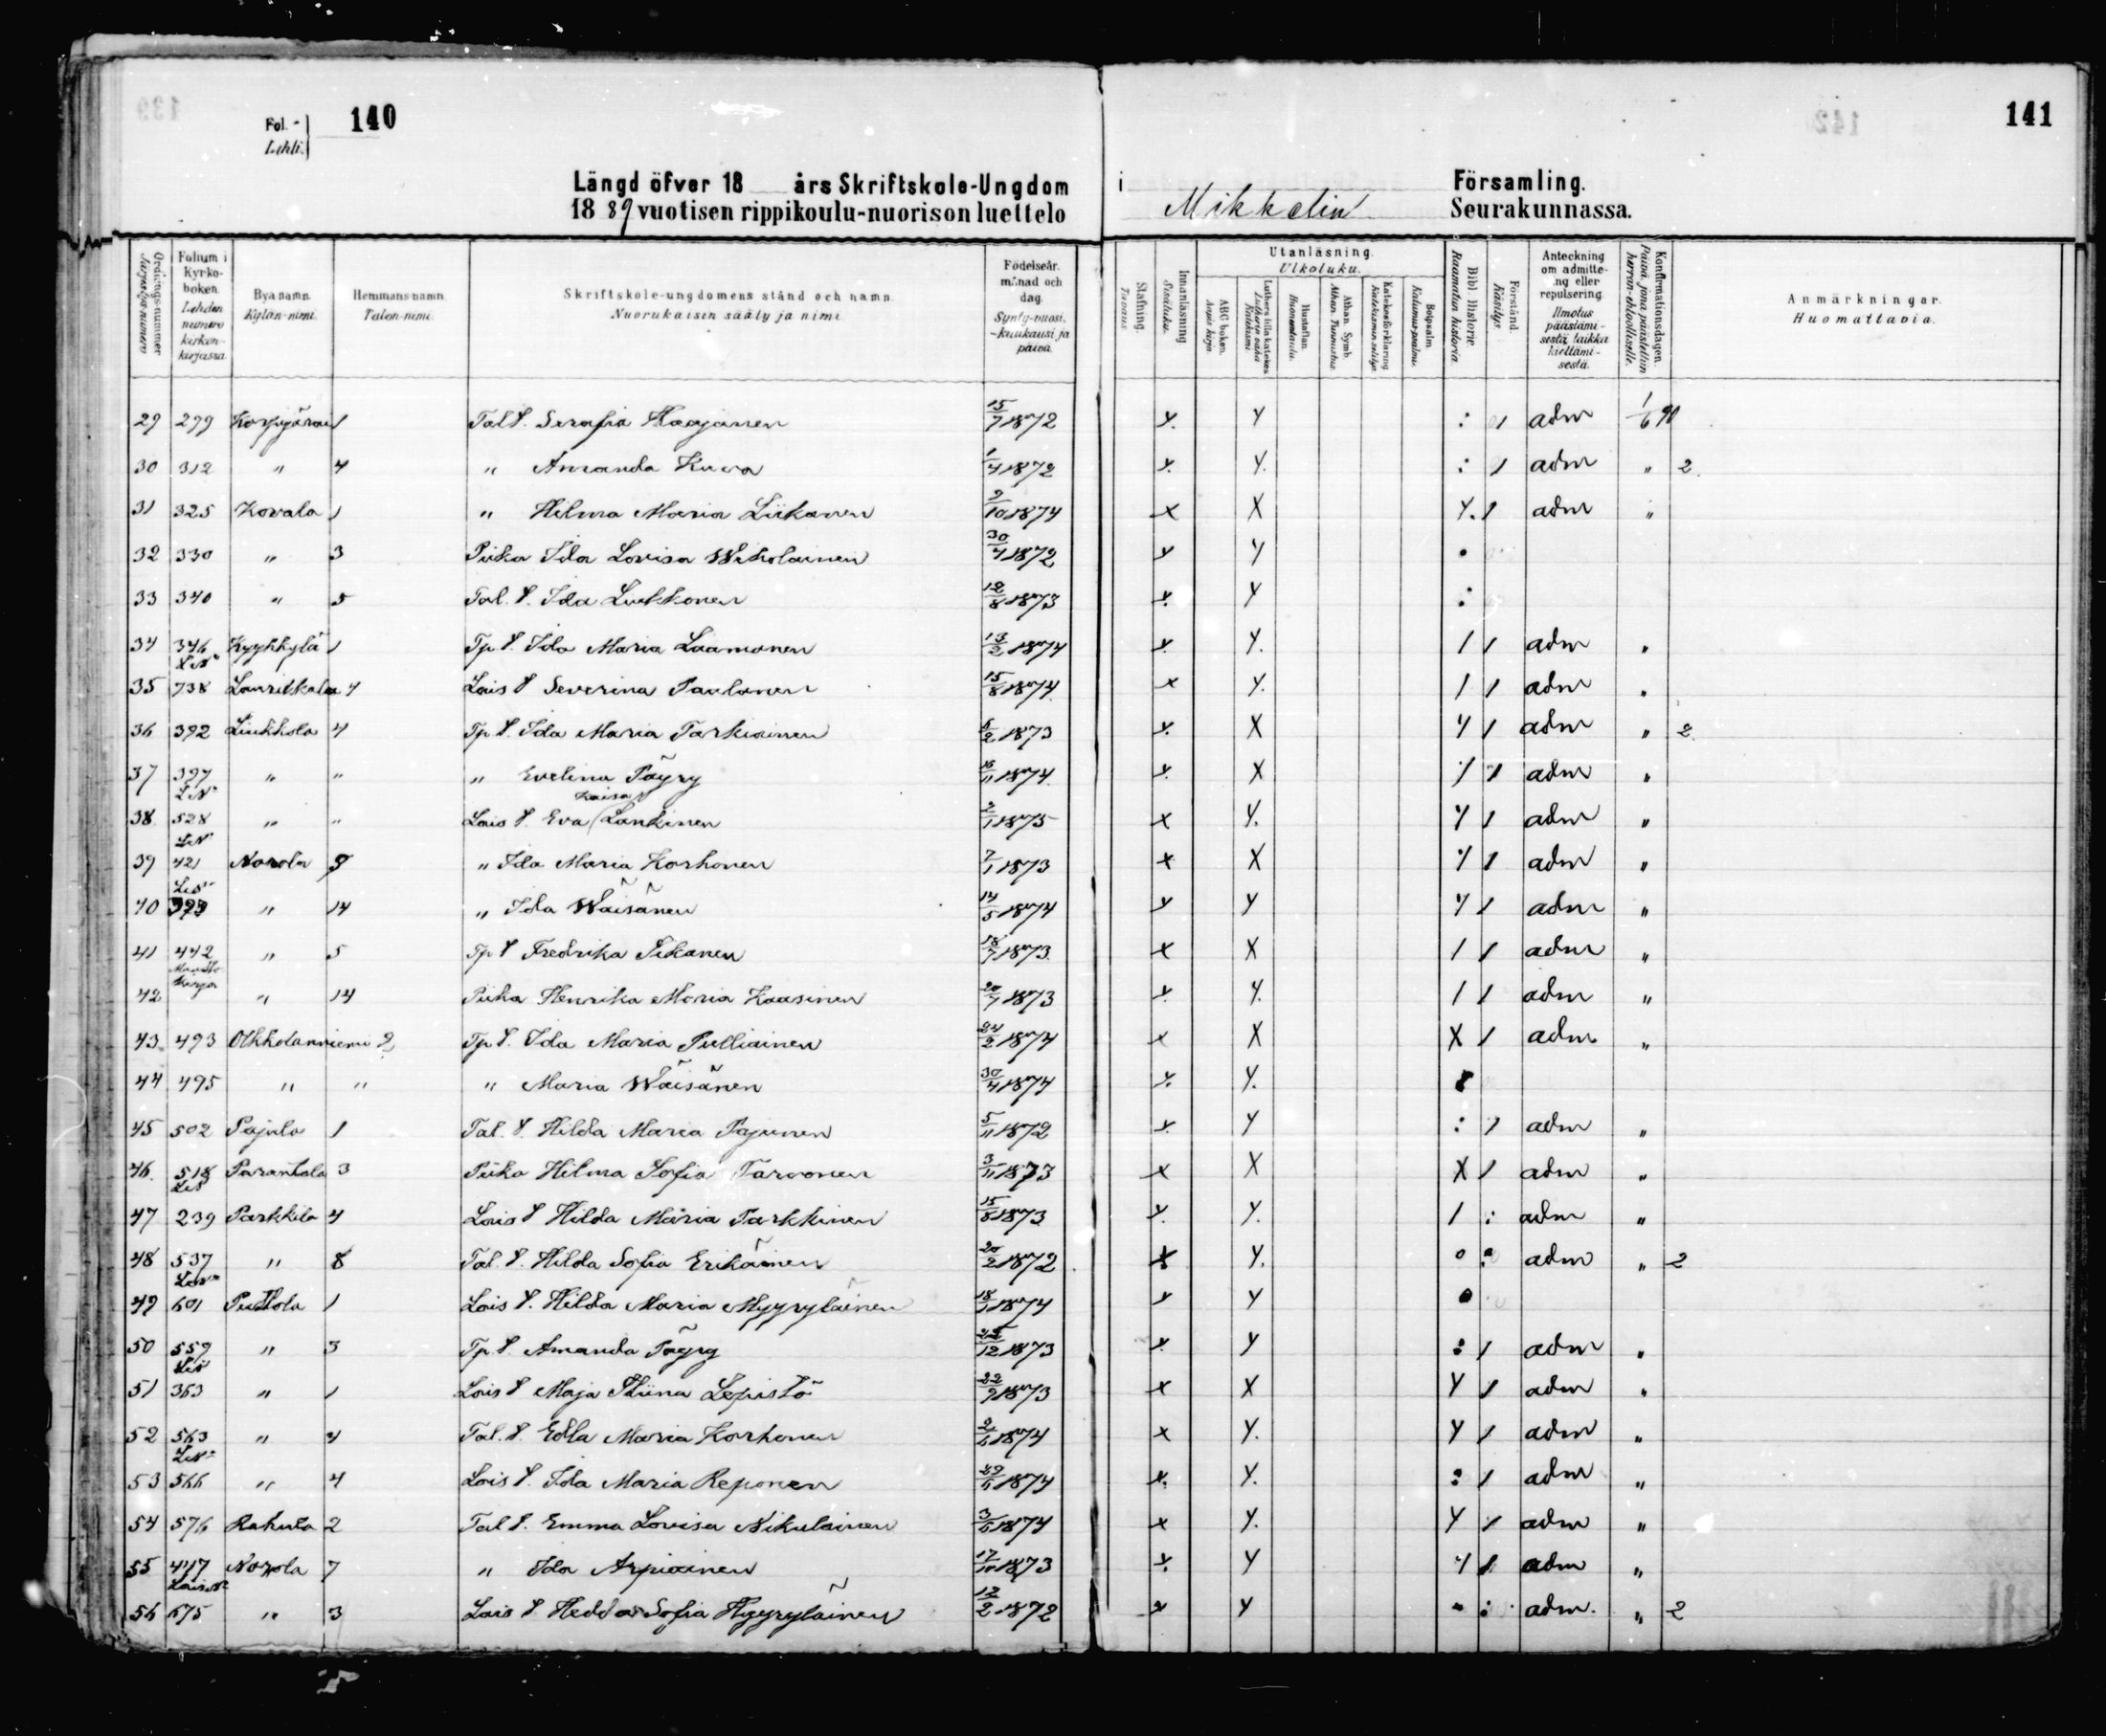 Fol. - 140 141
Lehti.
Längd öfver 18 års Skriftskole-Ungdom i Församling.
18 89 vuotisen rippikoulu-nuorison luettelo Mikkelin Seurakunnassa.
Ordningsnummer Järjestys-numero
Folium i Kyrko-boken. Lehden numero kirkon-kirjassa
Bya namn. Kylän-nimi.
Hemmans namn. Talon-nimi.
Skriftskole-ungdomens stånd och namn. Nuorukaisen sääty ja nimi.
Födelseår. månad och dag. Synty-vuosi, -kuukausi ja päivä.
Stafning. Tavaus
Innanläsning Sisäluku.
Utanläsning. Ulkoluku.
ABC boken. Aapis kirja
Luthers lilla katekes Lutherin vähä Katekismi
Hustaflan. Huoneentaulu.
Athan. Symb. Athan. Tunnustus.
Katekesförklaring Katekismin selitys
Botpsalm. Katumus-psalmi.
Bibl. Historie. Raamatun historia.
Förstånd. Käsitys.
Anteckning om admittering eller repulsering. Ilmotus päästämisestä taikka kieltämisestä.
Konfirmationsdagen. Päivä, jona päästettiin herran-ehtoolliselle.
Anmärkningar. Huomattavia.
29 299 Korpijärvi 1 Tal t. Serafia Haajanen 15/7 1872 x. Y : 1 adm 1/6 90
30 312 " 4 " Amanda Kuwa 1/4 1872 x. Y. : 1 adm " 2.
31 325 Kovala 1 " Hilma Maria Liikanen 9/10 1874 x X Y. 1 adm "
32 330 " 3 Piika Ida Lovisa Wiholainen 30/4 1872 x Y •
33 340 " 5 Tal. t. Ida Liukkonen 12/8 1873 x. Y :
34 346 Kyyhkylä 1 Tp t. Ida Maria Laamanen 13/2 1874 x. Y. 1 1 adm "
L N°
35 738 Lauritkala 4 Lois t Severina Paulanen 15/8 1874 x Y. 1 1 adm "
36 392 Liukkola 4 Tp t. Ida Maria Tarkiainen 6/2 1873 x. X Y 1 adm " 2.
37 397 " " " Evelina Pöyry 16/11 1874 x. X 1 adm "
L N° Kaisa
38 528 " " Lois t. Eva Lankinen 2/1 1875 x Y. Y 1 adm "
L N°
39 421 Norola 9 " Ida Maria Korhonen 7/1 1873 x X Y 1 adm "
L N°
40 393 " 14 " Ida Wäisänen 14/5 1874 x Y Y 1 adm "
41 442 " 5 Tp t Fredrika Pikanen 18/7 1873. x X 1 1 adm "
Muutto kirja
42 " 14 Piika Henrika Maria Kaasinen 20/7 1873 x. Y. 1 1 adm "
43 493 Olkkolanniemi 2 Tp t. Ida Maria Pulliainen 24/2 1874 x X X 1 adm "
44 495 " " " Maria Wäisänen 30/4 1874 x. Y.
45 502 Pajula 1 Tal. t. Hilda Maria Pajunen 5/11 1872 x. Y : 1 adm "
46 518 Parantala 3 Piika Hilma Sofia Tarvonen 3/11 1873 x X X 1 adm "
L N°
47 239 Parkkila 4 Lois t Hilda Maria Parkkinen 15/8 1873 x. Y. 1 : adm "
48 537 " 8 Tal. t. Hilda Sofia Erikäinen 20/2 1872 x Y. ° : adm " 2
L N°
49 601 Puttola 1 Lois t. Hilda Maria Myyryläinen 18/1 1874 x Y •
50 559 " 3 Tp. t. Amanda Pöyry 22/12 1873 x. Y : 1 adm "
L N°
51 363 " 1 Lois t Maja Stiina Lepistö 22/9 1873 x X Y 1 adm "
52 563 " 4 Tal. t. Edla Maria Korhonen 2/6 1874 x Y. Y 1 adm "
L N°
53 566 " 4 Lois t. Ida Maria Reponen 29/6 1874 x. Y. : 1 adm "
54 576 Rahula 2 Tal t. Emma Lovisa Nikulainen 3/5 1874 x Y. Y 1 adm "
55 417 Norola 7 " Ida Arpiainen 17/10 1873 x. Y Y 1 adm "
Lois N°
56 675 " 3 Lois t Hedda Sofia Hyyryläinen 12/2 1872 x Y • : adm. " 2